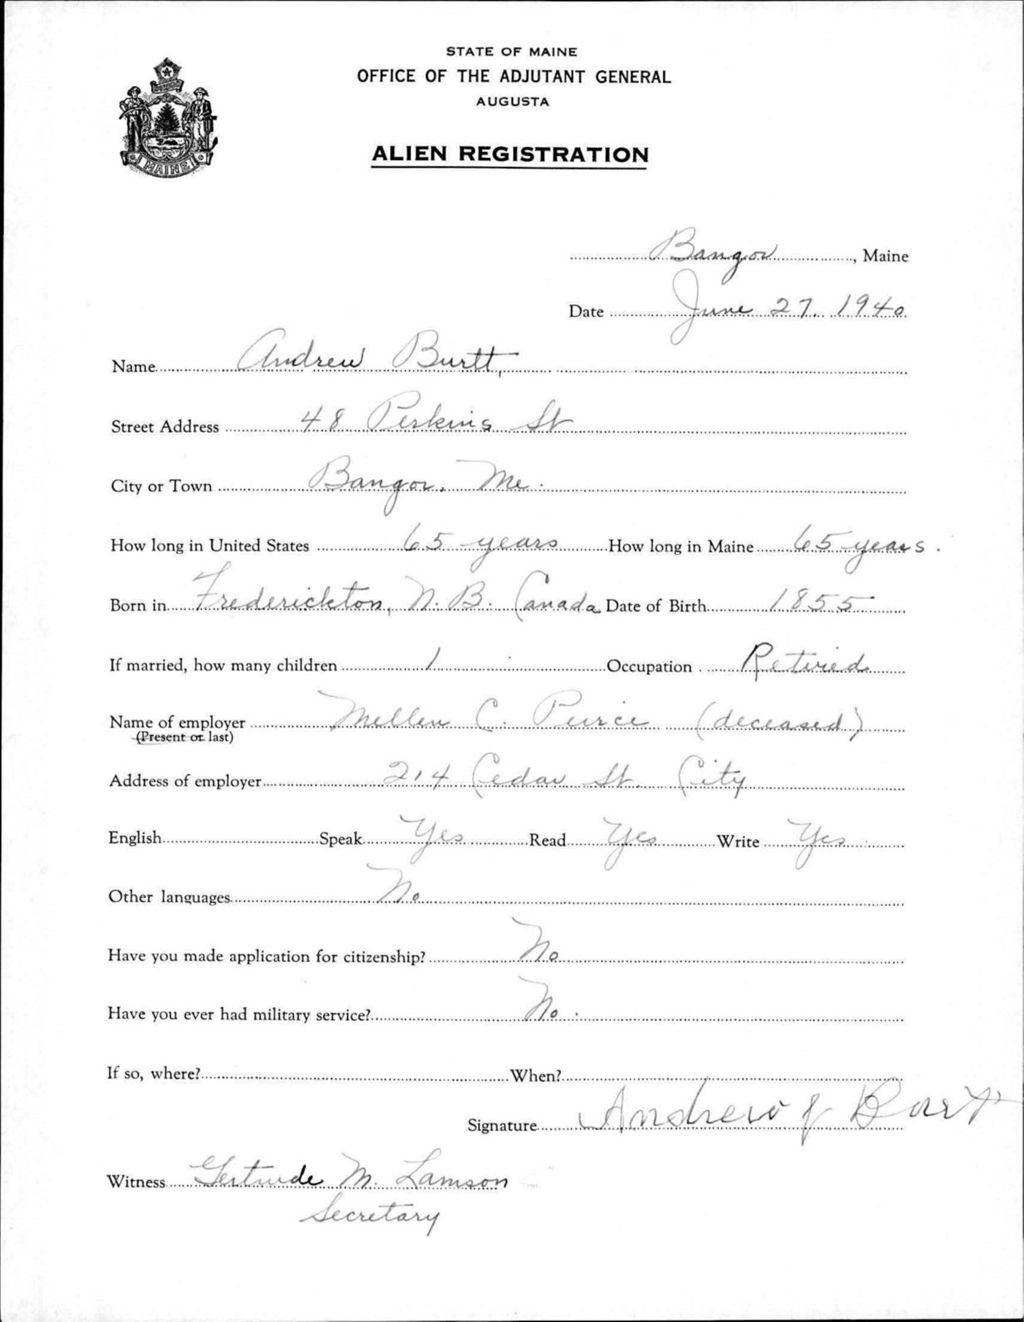 STATE OF MAINE
OFFICE OF THE ADJUTANT GENERAL
AUGUSTA
ALIEN REGISTRATION
MAINE
Bangor, Maine
Date June 27, 1940
Name Andrew Burtt,
Street Address 48 Perkins St
City or Town Bangor, Me.
How long in United States 65 years How long in Maine 65 years.
Born in Frederickton, N. B. Canada Date of Birth 1855
If married, how many children 1 Occupation Retired
Name of employer Mellen C. Peirce (deceased)
(Present or last)
Address of employer 214 Cedar St. City
English Speak Yes Read Yes Write Yes
Other languages No
Have you made application for citizenship? No
Have you ever had military service? No.
If so, where? When?
Signature Andrew J Burt
Witness Gertrude M. Lamson
Secretary